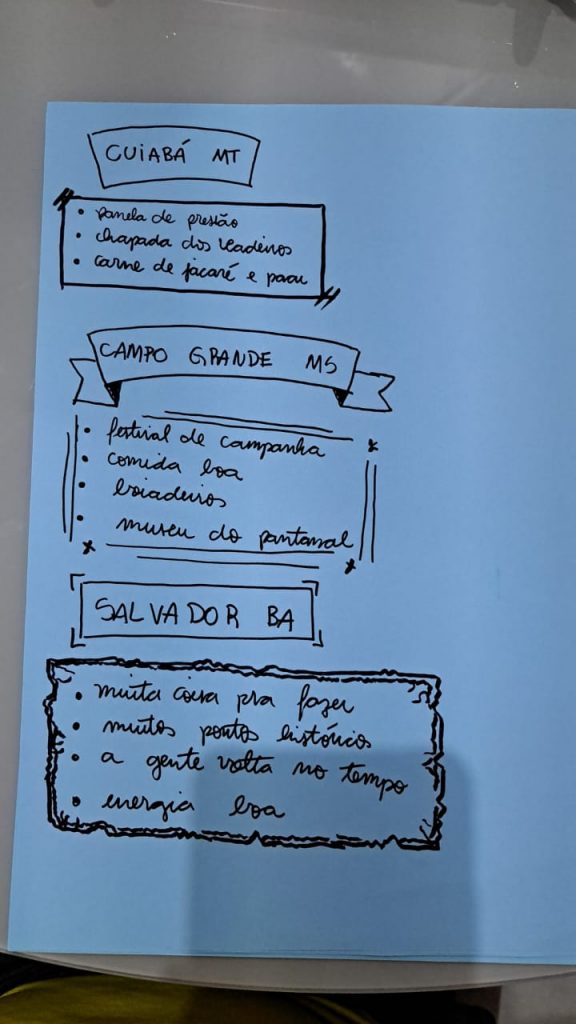 CUIABÁ MT
• panela de pressão
• chapada dos veadeiros
• carne de jacaré e pacu
CAMPO GRANDE MS
• festival de campanha
• comida boa
• boiadeiros
• museu do pantanal
SALVADOR BA
• muita coisa pra fazer
• muitos pontos históricos
• a gente volta no tempo
• energia boa